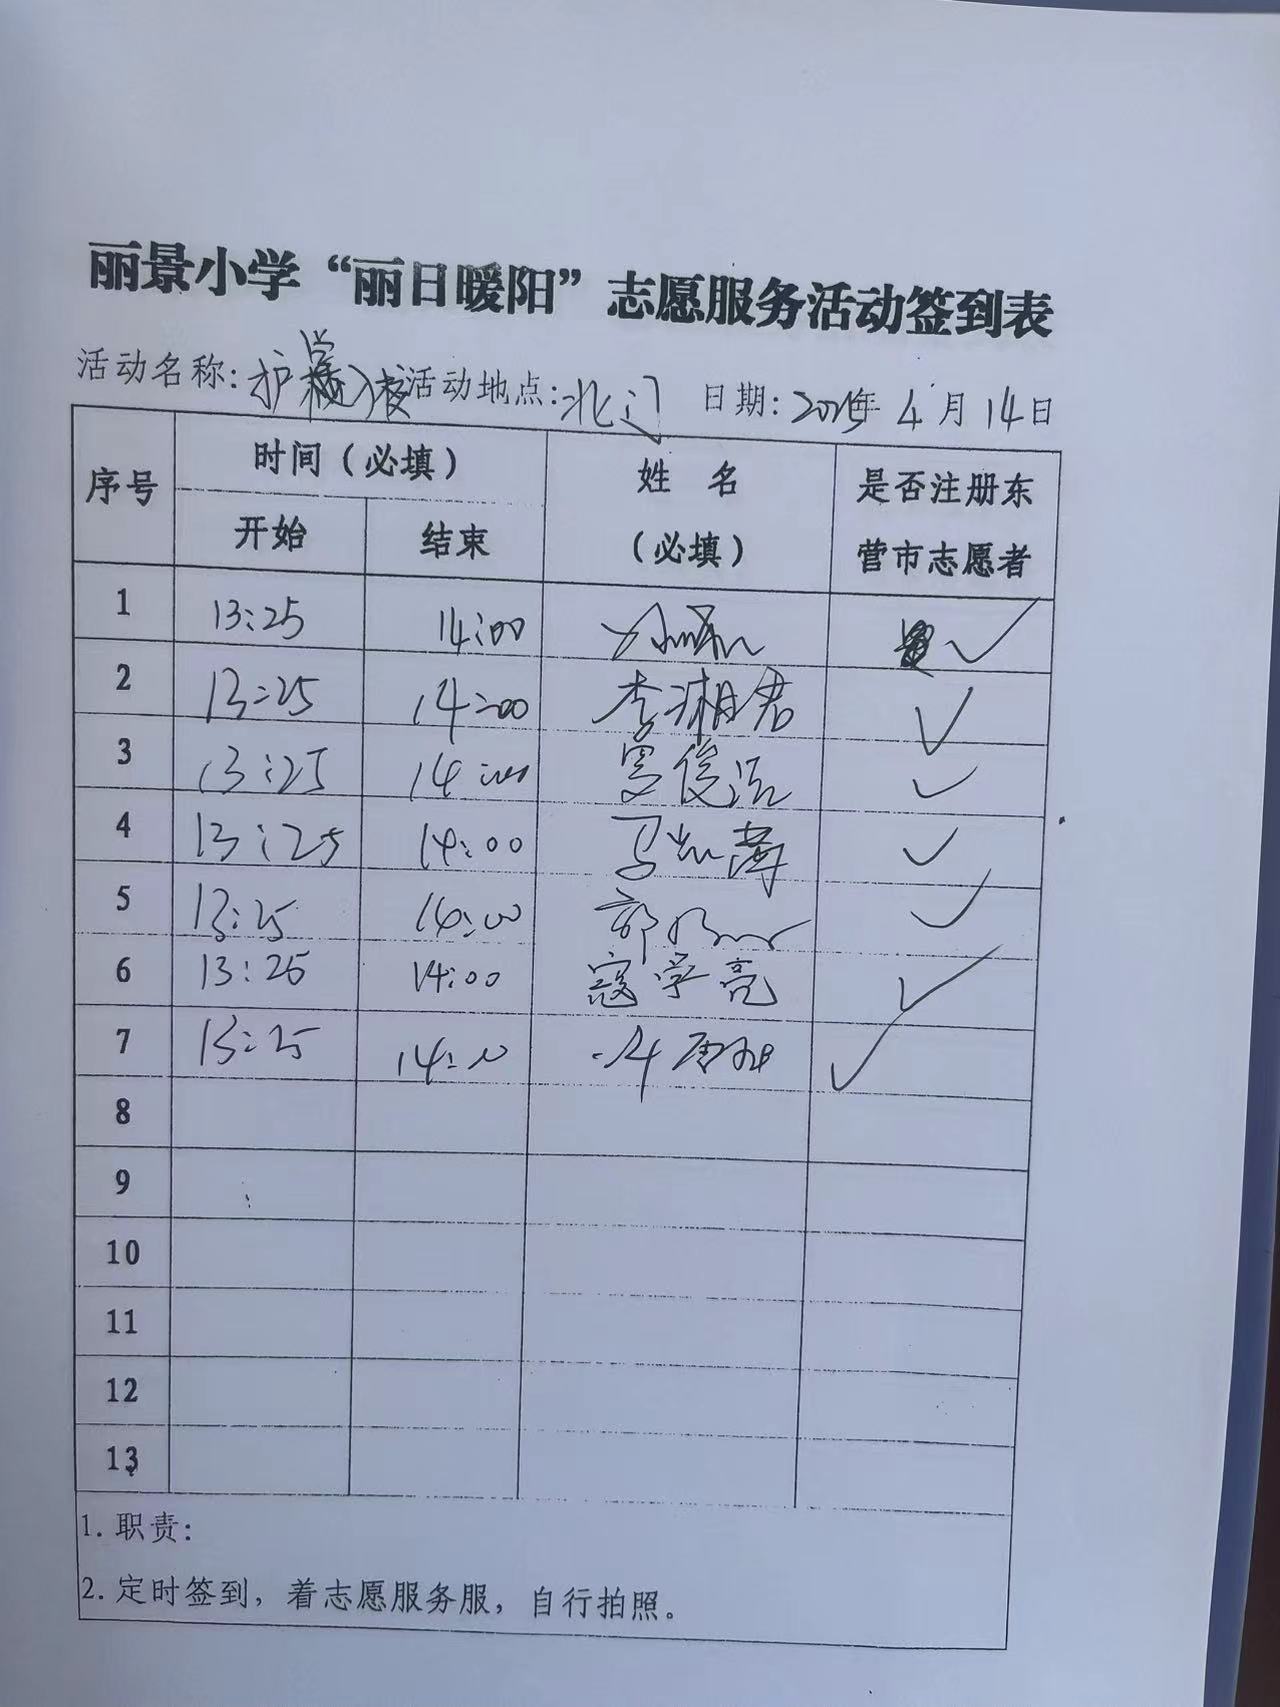 丽景小学“丽日暖阳”志愿服务活动签到表
活动名称:护学入校 活动地点:北门 日期:2025年 4月14日
序号 时间(必填) 姓 名 (必填) 是否注册东营市志愿者
开始 结束
1 13:25 14:00 ✓
2 13:25 14:00 李湘君 ✓
3 13:25 14:00 罗俊洁 ✓
4 13:25 14:00 马 ✓
5 13:25 14:00 郭 ✓
6 13:25 14:00 寇学亮 ✓
7 13:25 14:00 ✓
8
9
10
11
12
13
1. 职责:
2. 定时签到,着志愿服务服,自行拍照。